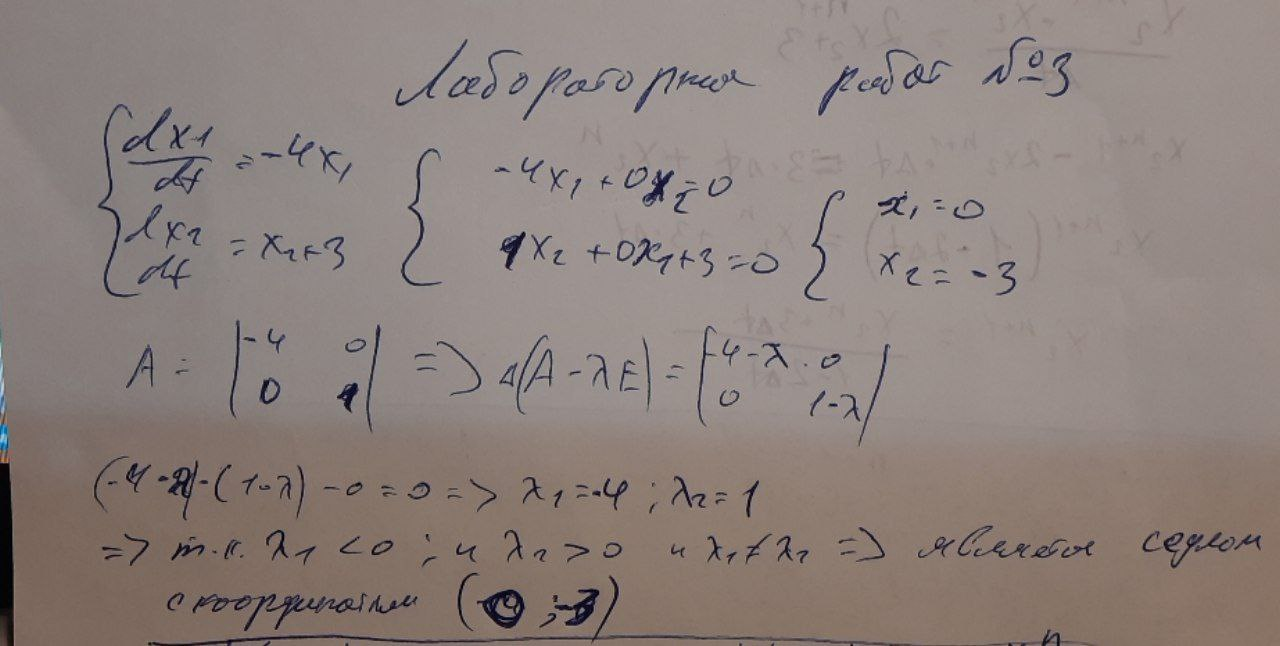 Лабораторная работ №3
{ dx1/dt = -4x₁ { -4x₁ + 0x₂ = 0 { x₁ = 0
dx₂/dt = x₂+3 1x₂ + 0x₁ + 3 = 0 x₂ = -3
A = |-4 0| => Δ(A - λE) = |-4-λ 0|
|0 1| |0 1-λ|
(-4-λ)·(1-λ) - 0 = 0 => λ₁ = -4 ; λ₂ = 1
=> т.к. λ₁ < 0 ; и λ₂ > 0 и λ₁ ≠ λ₂ => является седлом
с координатами (0 ; -3)